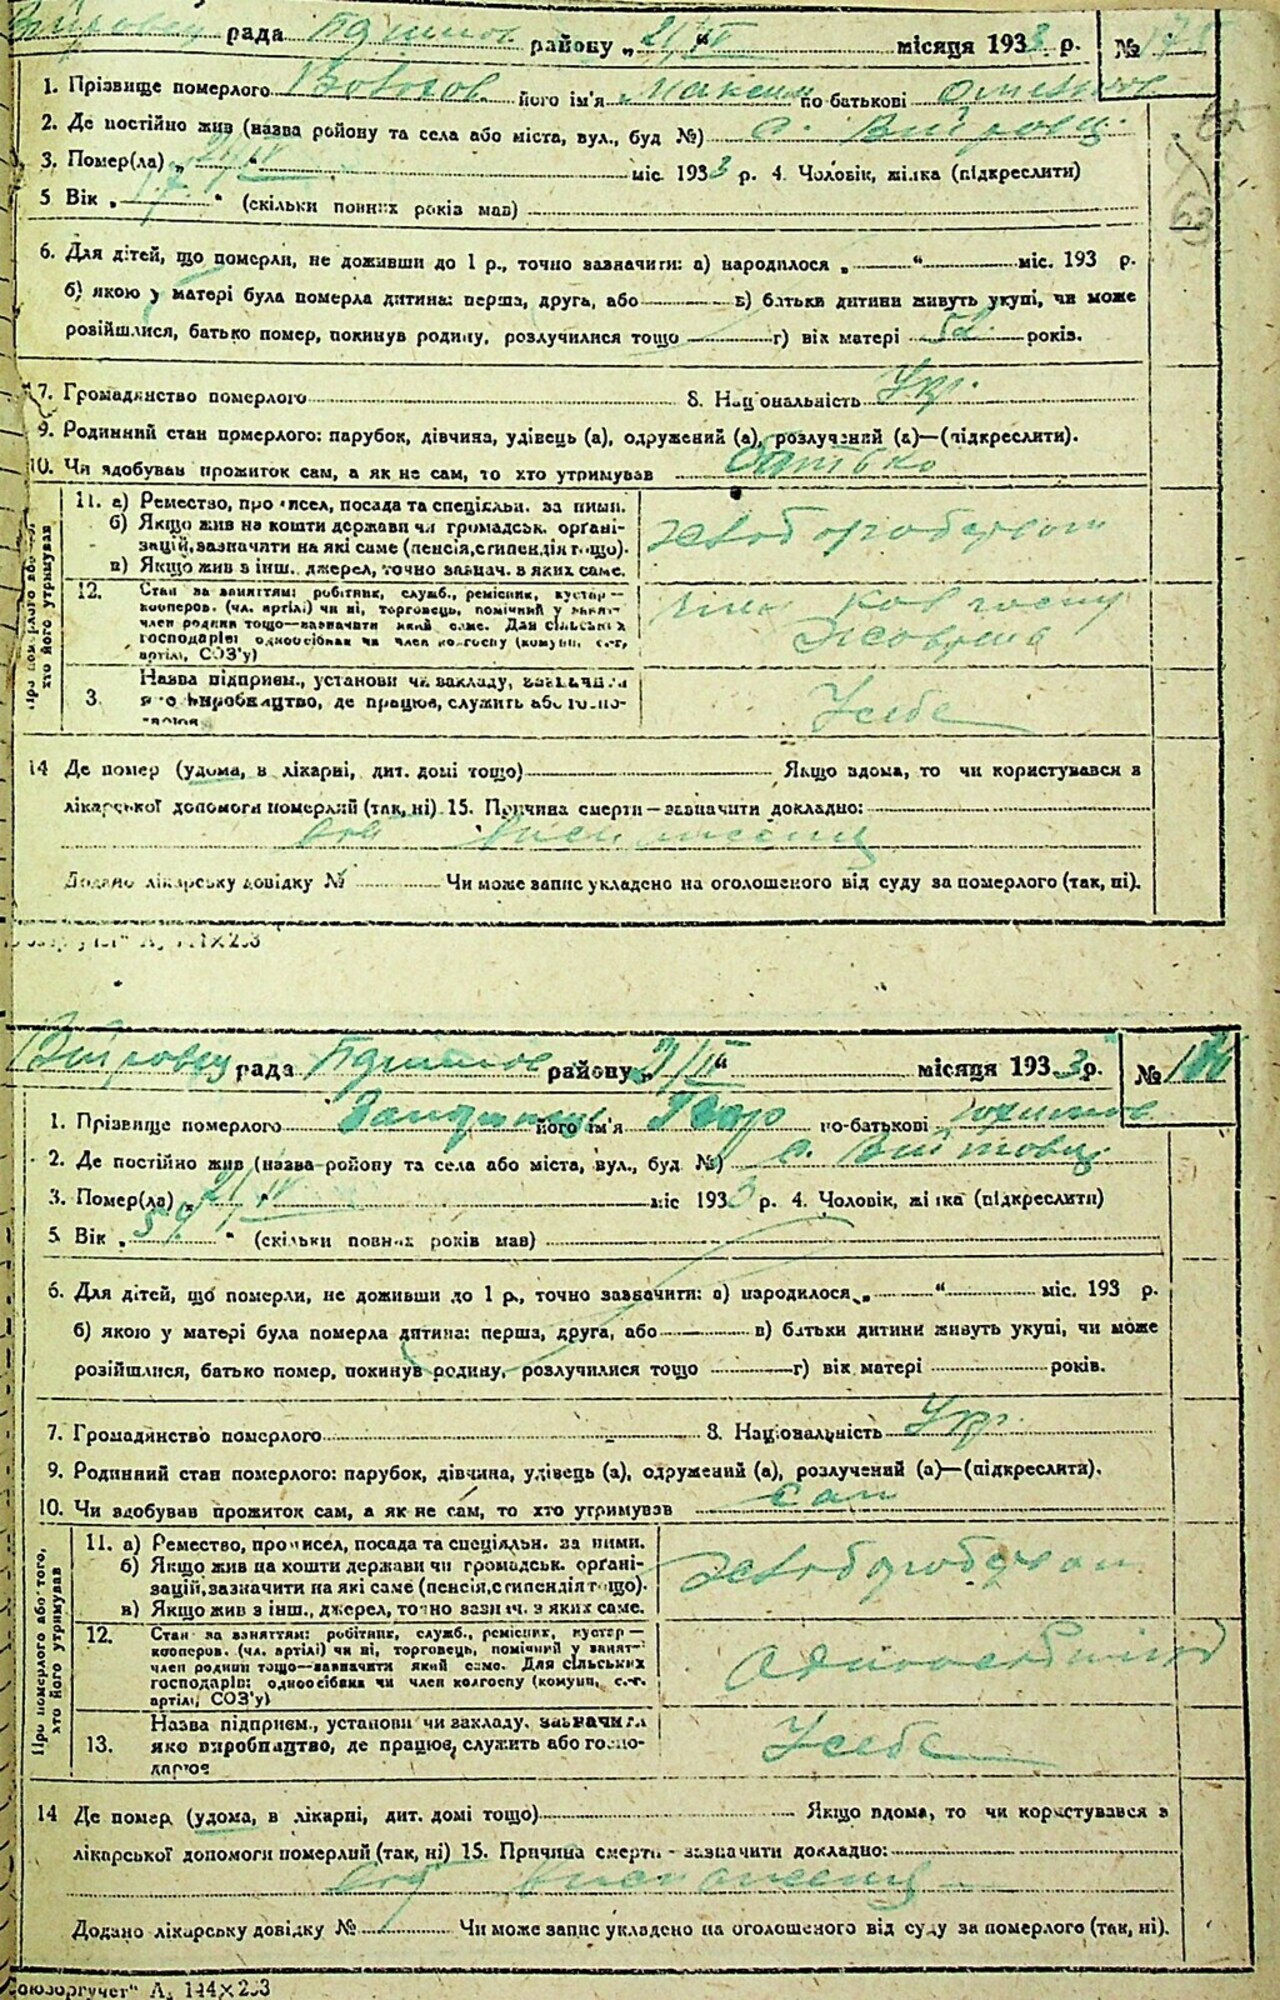 рада району „21/IV“ місяця 1933 р. №
1. Прізвище померлого його ім'я Максим по батькові
2. Де постійно жив (назва району та села або міста, вул., буд №) с.
3. Помер(ла) „21/IV“ міс. 1933 р. 4. Чоловік, жінка (підкреслити)
5 Вік „ “ (скільки повних років мав)
6. Для дітей, що померли, не доживши до 1 р., точно зазначити: а) народилося „ “ міс. 193 р.
б) якою у матері була померла дитина: перша, друга, або в) батьки дитини живуть укупі, чи може
розійшлися, батько помер, покинув родину, розлучилися тощо г) вік матері років.
7. Громадянство померлого 8. Національність Укр.
9. Родинний стан померлого: парубок, дівчина, удівець (а), одружений (а), розлучений (а)—(підкреслити).
10. Чи здобував прожиток сам, а як не сам, то хто утримував батько
11. а) Ремество, промисел, посада та спеціяльн. за ними.
б) Якщо жив на кошти держави чи громадськ. органі-
зацій, зазначити на які саме (пенсія, стипендія тощо).
в) Якщо жив з інш. джерел, точно зазнач. з яких саме.
хлібороб
12. Стан за заняттям: робітник, служб., ремісник, кустар—
кооперов. (чл. артілі) чи ні, торговець, помічний у занят-
член родини тощо—зазначити який саме. Для сільських
господарів: одноосібник чи член колгоспу (комуни, с.-г.
артілі, СОЗ'у)
член колгоспу
3. Назва підприєм., установи чи закладу, зазначити
яко виробництво, де працює, служить або госпо-
Усебе
14 Де помер (удома, в лікарні, дит. домі тощо) Якщо вдома, то чи користувався з
лікарської допомоги померлий (так, ні) 15. Причина смерти — зазначити докладно:
від
Додано лікарську довідку № Чи може запис укладено на оголошеного від суду за померлого (так, ні).
рада району „21/IV“ місяця 1933 р. №
1. Прізвище померлого його ім'я по-батькові
2. Де постійно жив (назва району та села або міста, вул., буд №) с.
3. Помер(ла) „21/IV“ міс 1933 р. 4. Чоловік, жінка (підкреслити)
5. Вік „59“ (скільки повних років мав)
6. Для дітей, що померли, не доживши до 1 р., точно зазначити: а) народилося „ “ міс. 193 р.
б) якою у матері була померла дитина: перша, друга, або в) батьки дитини живуть укупі, чи може
розійшлися, батько помер, покинув родину, розлучилися тощо г) вік матері років.
7. Громадянство померлого 8. Національність Укр.
9. Родинний стан померлого: парубок, дівчина, удівець (а), одружений (а), розлучений (а)—(підкреслити).
10. Чи здобував прожиток сам, а як не сам, то хто утримував сам
Про померлого або того,
хто його утримував
11. а) Ремество, промисел, посада та спеціяльн. за ними.
б) Якщо жив на кошти держави чи громадськ. органі-
зацій, зазначити на які саме (пенсія, стипендія тощо).
в) Якщо жив з інш. джерел, точно зазнач. з яких саме.
хлібороб
12. Стан за заняттям: робітник, служб., ремісник, кустар—
кооперов. (чл. артілі) чи ні, торговець, помічний у занят-
член родини тощо—зазначити який саме. Для сільських
господарів: одноосібник чи член колгоспу (комуни, с.-г.
артілі, СОЗ'у)
одноосібник
13. Назва підприєм., установи чи закладу, зазначити
яко виробництво, де працює, служить або госпо-
дарює
Усебе
14 Де помер (удома, в лікарні, дит. домі тощо) Якщо вдома, то чи користувався з
лікарської допомоги померлий (так, ні) 15. Причина смерти - зазначити докладно:
від
Додано лікарську довідку № Чи може запис укладено на оголошеного від суду за померлого (так, ні).
оюзоргучет" А, 144×203